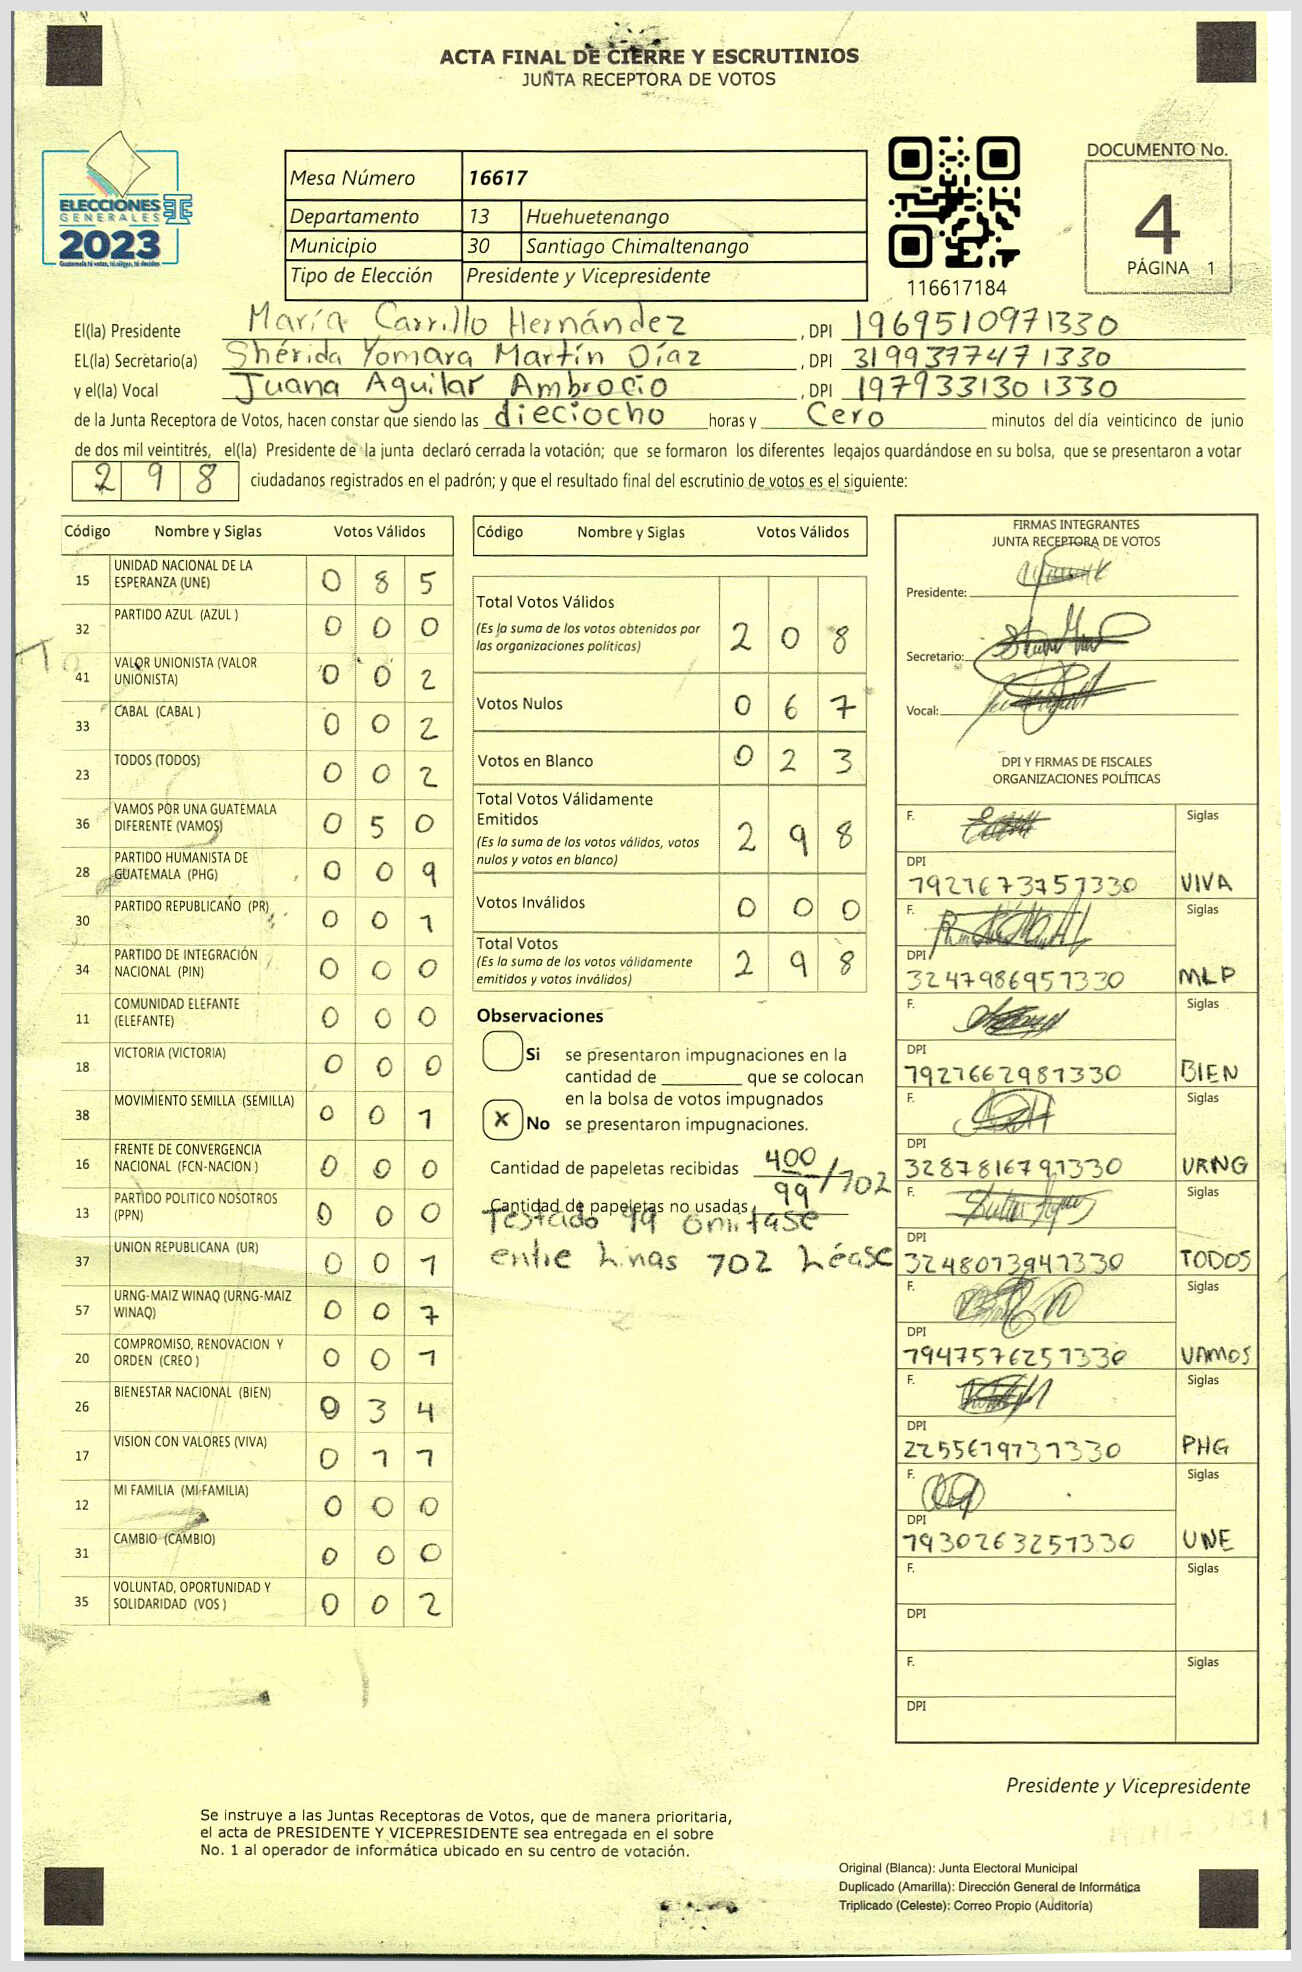 ACTA FINAL DE CIERRE Y ESCRUTINIOS
JUNTA RECEPTORA DE VOTOS
ELECCIONES
GENERALES
2023
Guatemala tú votas, tú eliges, tú decides
TSE
Mesa Número 16617
Departamento 13 Huehuetenango
Municipio 30 Santiago Chimaltenango
Tipo de Elección Presidente y Vicepresidente
116617184
DOCUMENTO No.
4
PÁGINA 1
El(la) Presidente María Carrillo Hernández, DPI 1969510971330
EL(la) Secretario(a) Shérida Yomara Martín Díaz, DPI 3199377471330
y el(la) Vocal Juana Aguilar Ambrocio, DPI 1979331301330
de la Junta Receptora de Votos, hacen constar que siendo las dieciocho horas y Cero minutos del día veinticinco de junio
de dos mil veintitrés, el(la) Presidente de la junta declaró cerrada la votación; que se formaron los diferentes legajos guardándose en su bolsa, que se presentaron a votar
298 ciudadanos registrados en el padrón; y que el resultado final del escrutinio de votos es el siguiente:
Código Nombre y Siglas Votos Válidos
15 UNIDAD NACIONAL DE LA ESPERANZA (UNE) 0 8 5
32 PARTIDO AZUL (AZUL ) 0 0 0
41 VALOR UNIONISTA (VALOR UNIONISTA) 0 0 2
33 CABAL (CABAL ) 0 0 2
23 TODOS (TODOS) 0 0 2
36 VAMOS POR UNA GUATEMALA DIFERENTE (VAMOS) 0 5 0
28 PARTIDO HUMANISTA DE GUATEMALA (PHG) 0 0 9
30 PARTIDO REPUBLICANO (PR) 0 0 1
34 PARTIDO DE INTEGRACIÓN NACIONAL (PIN) 0 0 0
11 COMUNIDAD ELEFANTE (ELEFANTE) 0 0 0
18 VICTORIA (VICTORIA) 0 0 0
38 MOVIMIENTO SEMILLA (SEMILLA) 0 0 1
16 FRENTE DE CONVERGENCIA NACIONAL (FCN-NACION ) 0 0 0
13 PARTIDO POLITICO NOSOTROS (PPN) 0 0 0
37 UNION REPUBLICANA (UR) 0 0 1
57 URNG-MAIZ WINAQ (URNG-MAIZ WINAQ) 0 0 7
20 COMPROMISO, RENOVACION Y ORDEN (CREO ) 0 0 1
26 BIENESTAR NACIONAL (BIEN) 0 3 4
17 VISION CON VALORES (VIVA) 0 1 1
12 MI FAMILIA (MI FAMILIA) 0 0 0
31 CAMBIO (CAMBIO) 0 0 0
35 VOLUNTAD, OPORTUNIDAD Y SOLIDARIDAD (VOS ) 0 0 2
Código Nombre y Siglas Votos Válidos
Total Votos Válidos 2 0 8
(Es la suma de los votos obtenidos por
las organizaciones políticas)
Votos Nulos 0 6 7
Votos en Blanco 0 2 3
Total Votos Válidamente
Emitidos 2 9 8
(Es la suma de los votos válidos, votos
nulos y votos en blanco)
Votos Inválidos 0 0 0
Total Votos 2 9 8
(Es la suma de los votos válidamente
emitidos y votos inválidos)
Observaciones
Si se presentaron impugnaciones en la
cantidad de ________ que se colocan
en la bolsa de votos impugnados
X No se presentaron impugnaciones.
Cantidad de papeletas recibidas 400
Cantidad de papeletas no usadas 99 /102
Testado 99 Omitase
entre Linas 102 Léase
FIRMAS INTEGRANTES
JUNTA RECEPTORA DE VOTOS
Presidente:
Secretario:
Vocal:
DPI Y FIRMAS DE FISCALES
ORGANIZACIONES POLÍTICAS
F. Siglas
DPI 1921673751330 VIVA
F. Siglas
DPI 3247986951330 MLP
F. Siglas
DPI 1921662981330 BIEN
F. Siglas
DPI 3287816791330 URNG
F. Siglas
DPI 3248013941330 TODOS
F. Siglas
DPI 1947576251330 VAMOS
F. Siglas
DPI 2255619731330 PHG
F. Siglas
DPI 1930263251330 UNE
F. Siglas
DPI
F. Siglas
DPI
Presidente y Vicepresidente
Se instruye a las Juntas Receptoras de Votos, que de manera prioritaria,
el acta de PRESIDENTE Y VICEPRESIDENTE sea entregada en el sobre
No. 1 al operador de informática ubicado en su centro de votación.
Original (Blanca): Junta Electoral Municipal
Duplicado (Amarilla): Dirección General de Informática
Triplicado (Celeste): Correo Propio (Auditoría)